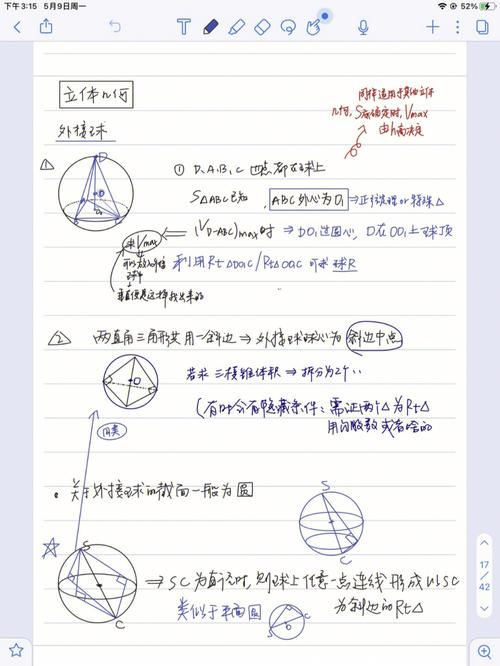 下午 3:15 5月9日周一
52%
立体几何
同样适用于其他立体
几何, S底确定时, Vmax
由h高决定
外接球
① D、A、B、C 四点都在球上
S△ABC已知, ABC外心为O₁ ⇒正弦定理or特殊△
求Vmax ⇐ (V D-ABC)max时 ⇒ DO₁过圆心, D在OO₁上球顶
利用Rt△ 可求 球R
② 两直角三角形共用一斜边⇒外接球球心为 斜边中点
若求三棱锥体积⇒拆分为2个..
(有时会有隐藏条件: 需证两个△为Rt△
用勾股数或者啥的
同类
关于外接球的截面一般为圆
S
☆ S
⇒SC为直径时, 则球上任意一点连线形成以SC
C
为斜边的Rt△
类似于平面圆
S C
17
/
42